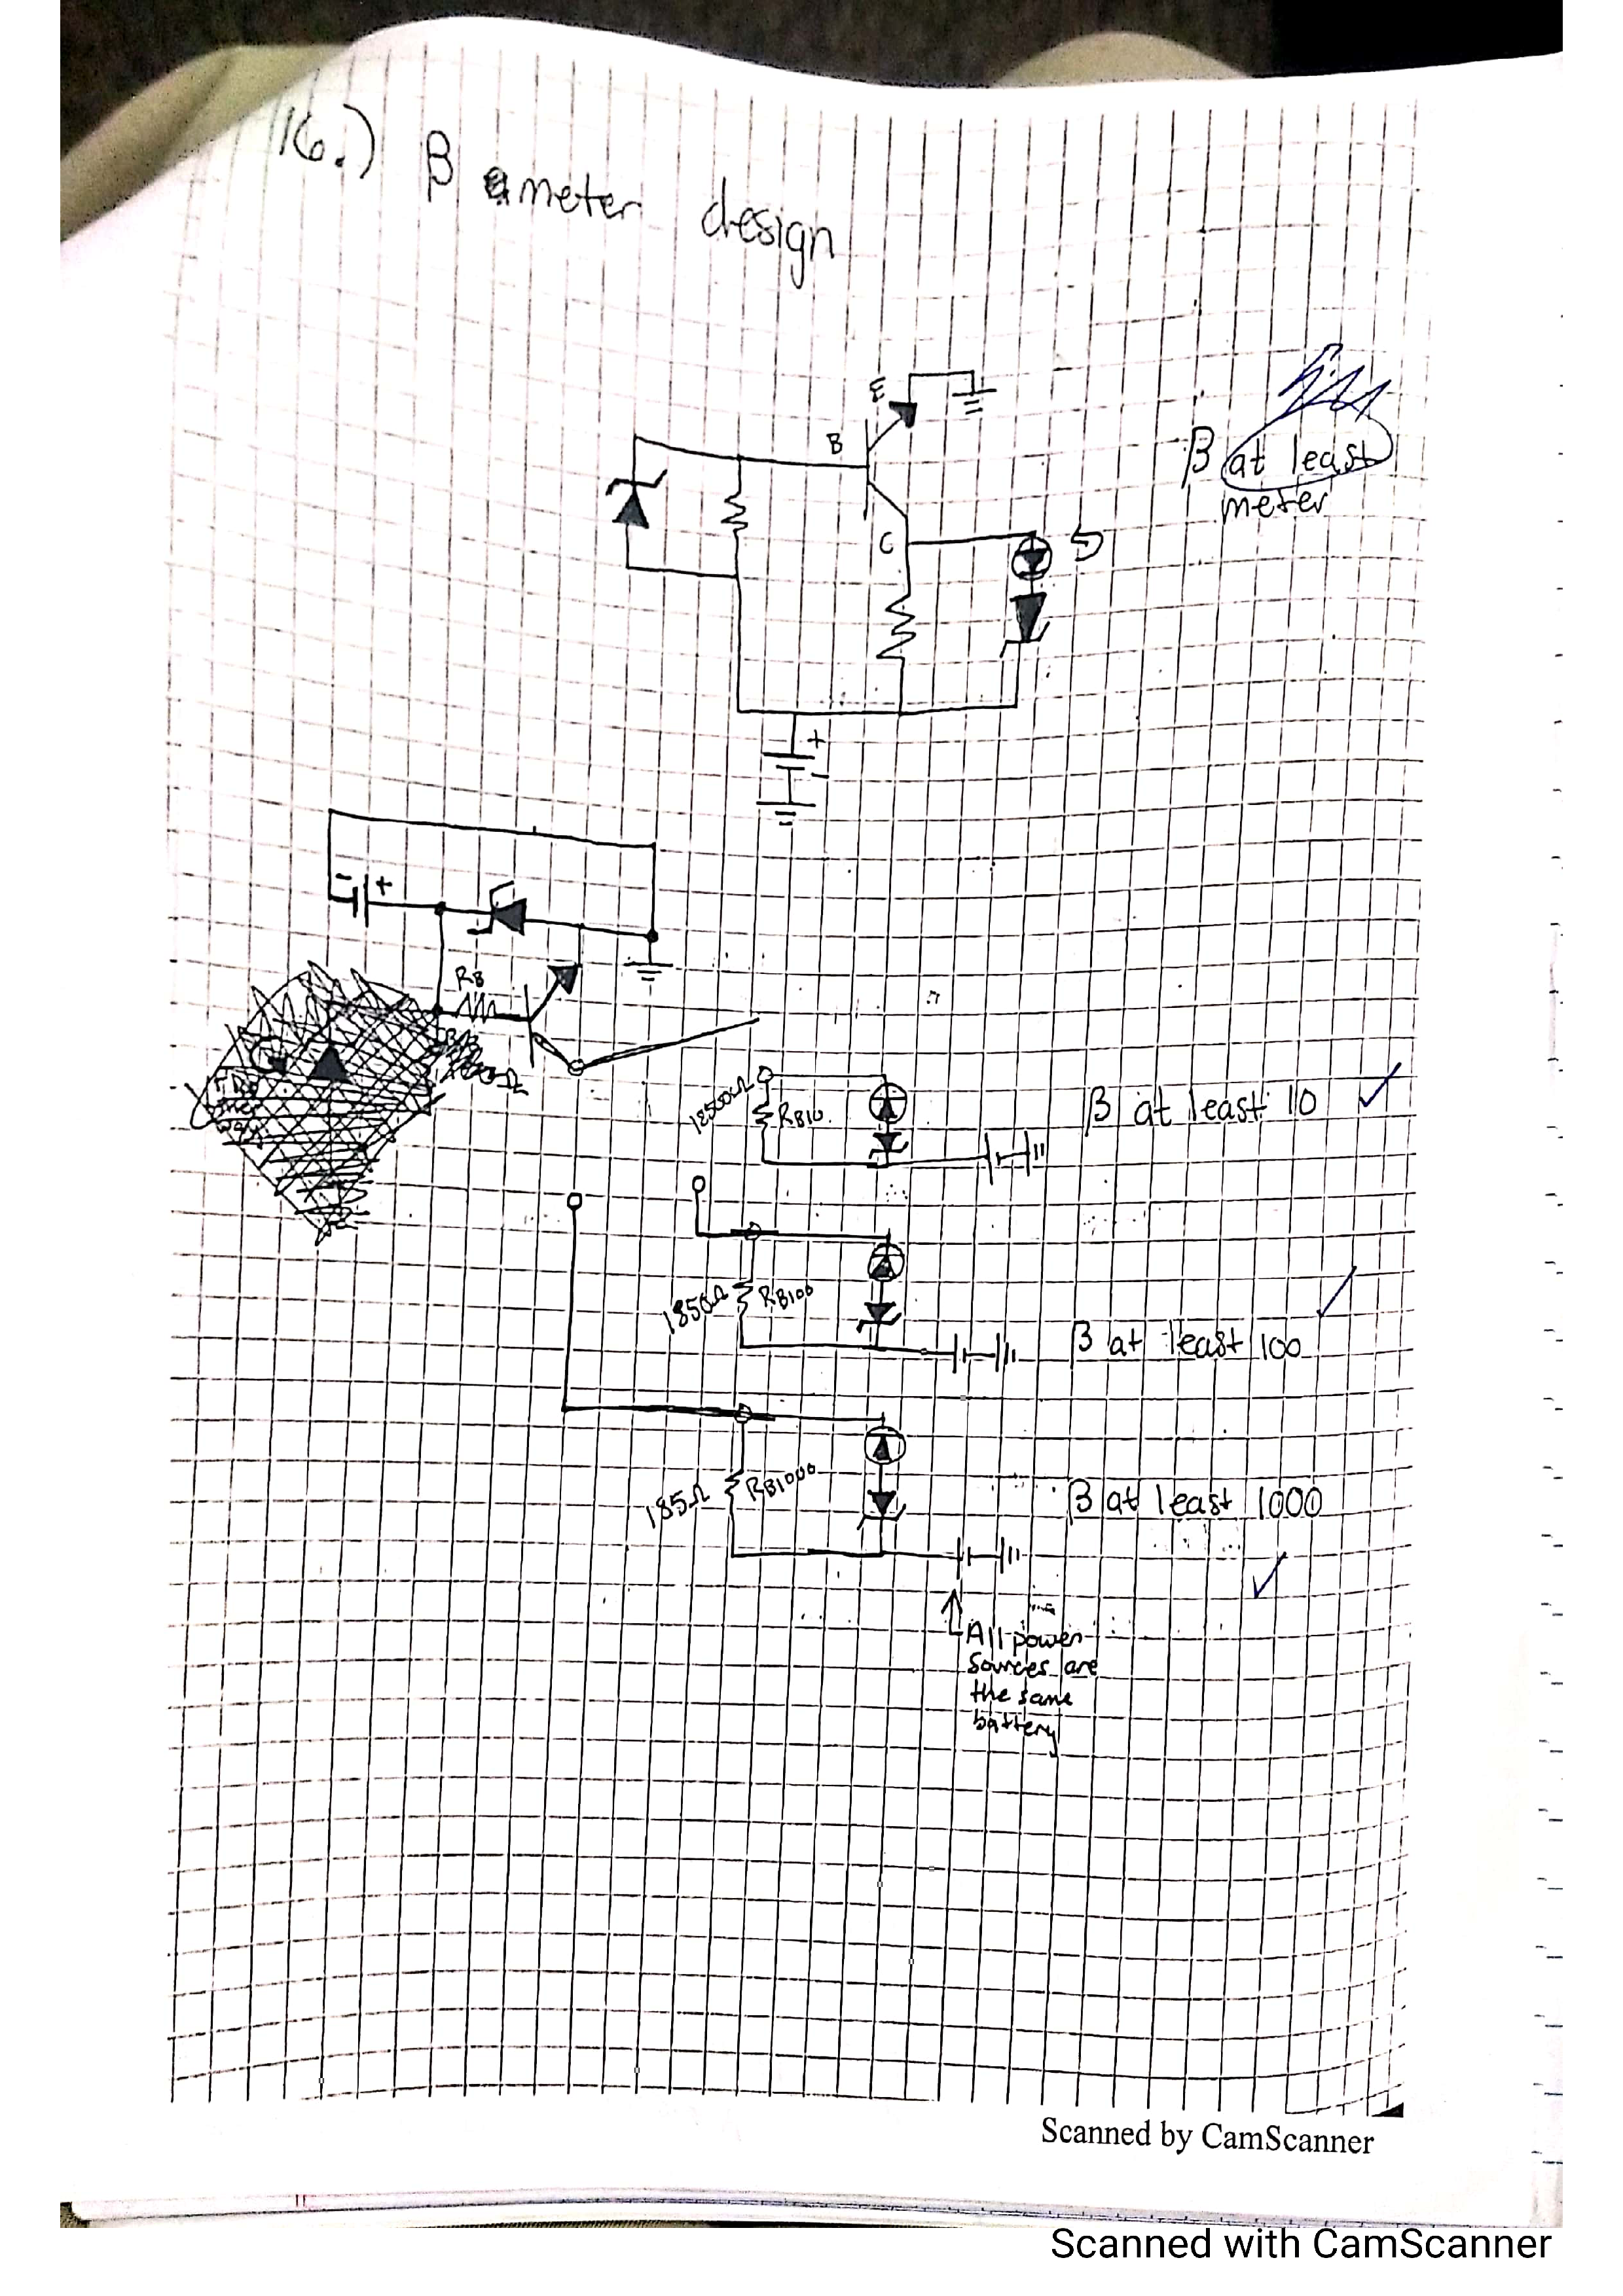 16.) β meter design
E
B
C
β at least
meter
+
-
- +
RB
18500Ω RB10
β at least 10 ✓
1850Ω RB100
β at least 100 ✓
185Ω RB1000
β at least 1000
✓
All power
sources are
the same
battery
Scanned by CamScanner
Scanned with CamScanner